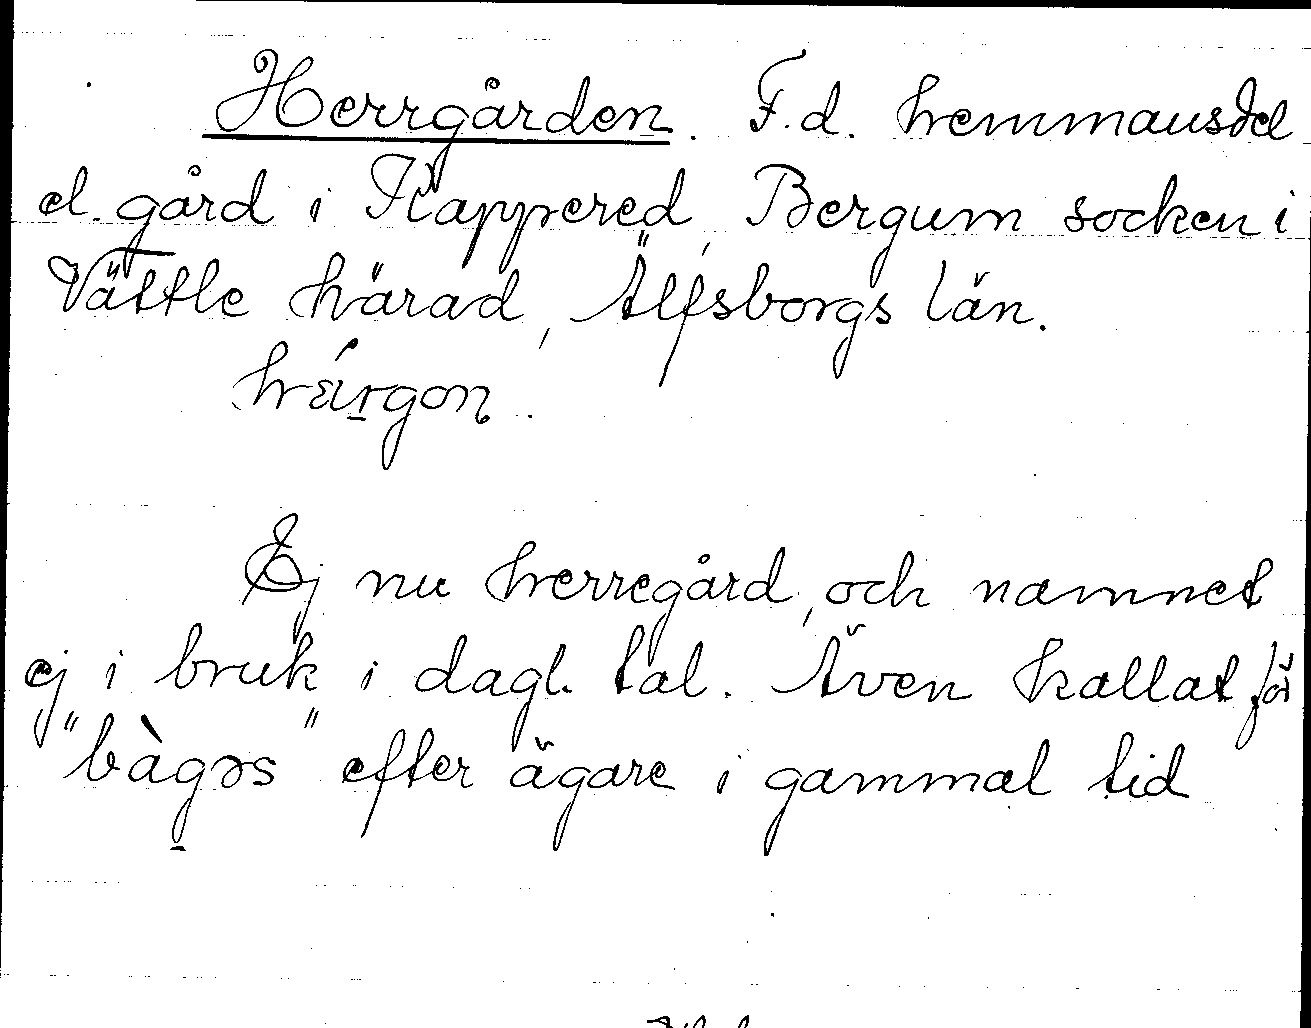 Herrgården. F.d. hemmansdel
el. gård i Rappered, Bergum socken i
Vättle härad, Älfsborgs län.
hǽrgon.
Ej nu herregård, och namnet
ej i bruk i dagl. tal. Även kallat för
"bàgǝs" efter ägare i gammal tid